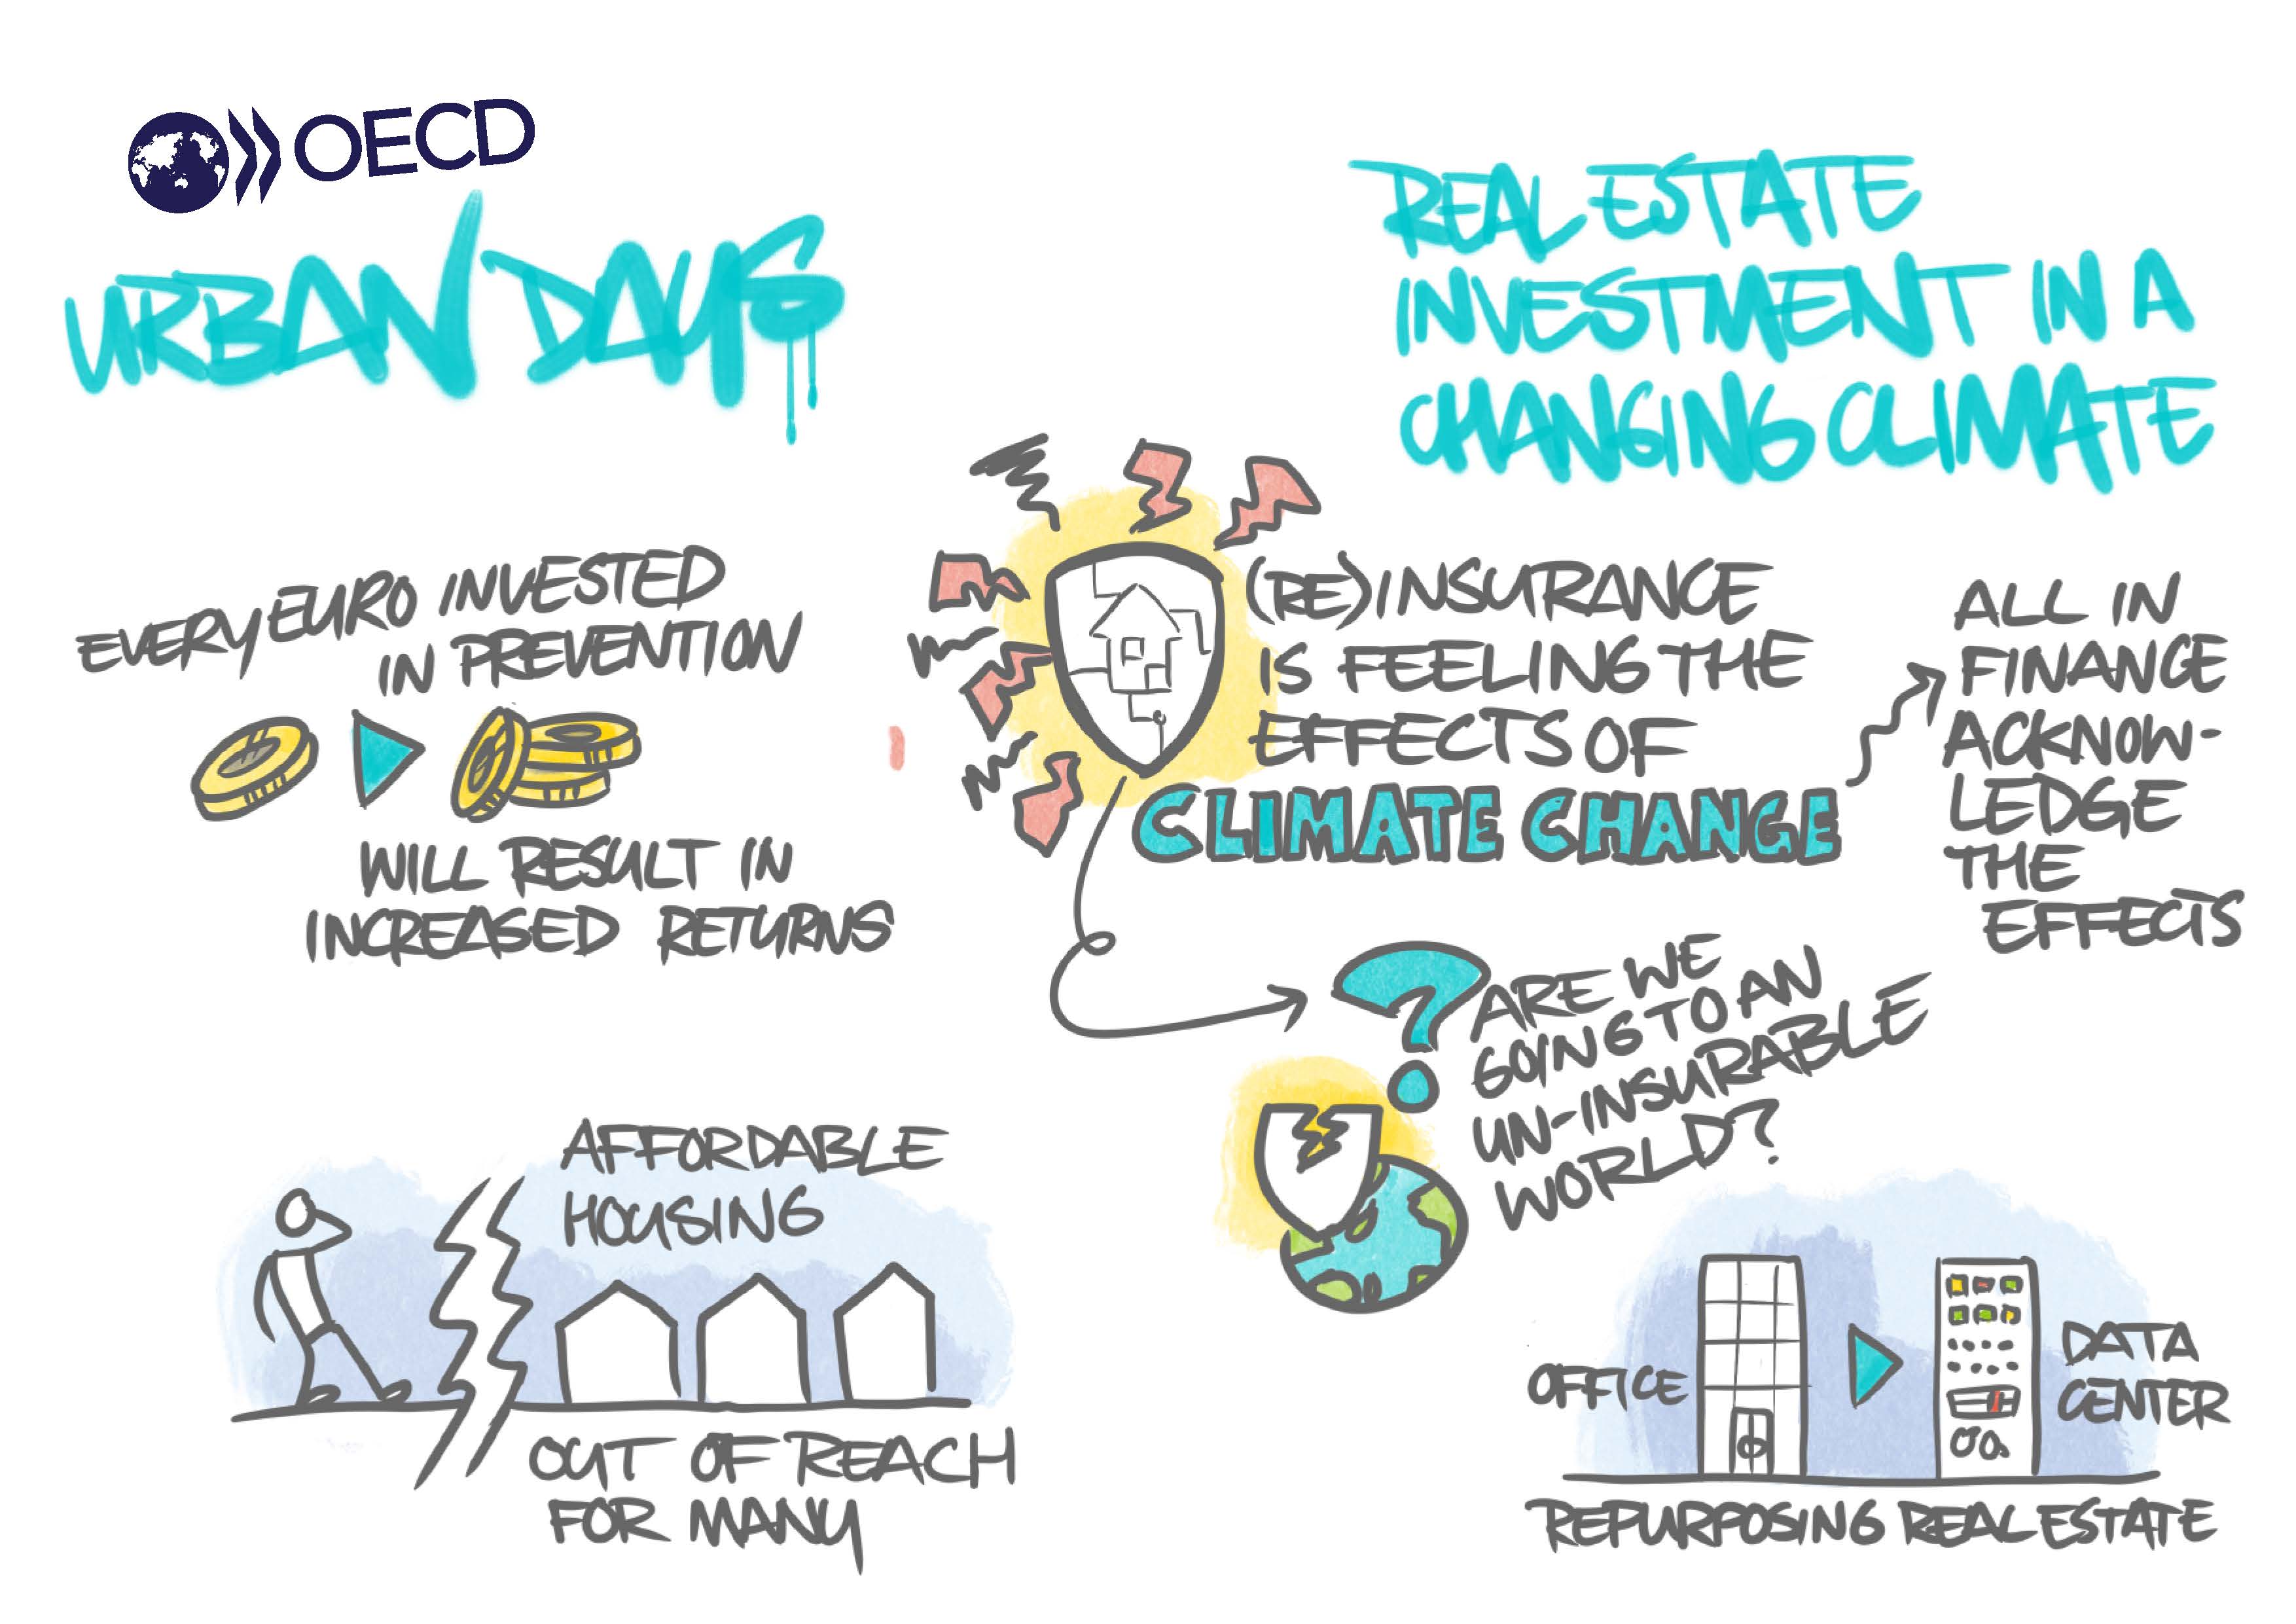 OECD
URBAN DAYS
REAL ESTATE
INVESTMENT IN A
CHANGING CLIMATE
EVERY EURO INVESTED
IN PREVENTION
WILL RESULT IN
INCREASED RETURNS
(RE)INSURANCE
IS FEELING THE
EFFECTS OF
CLIMATE CHANGE
ALL IN
FINANCE
ACKNOW-
LEDGE
THE
EFFECTS
?
ARE WE
GOING TO AN
UN-INSURABLE
WORLD?
AFFORDABLE
HOUSING
OUT OF REACH
FOR MANY
OFFICE
DATA
CENTER
REPURPOSING REAL ESTATE